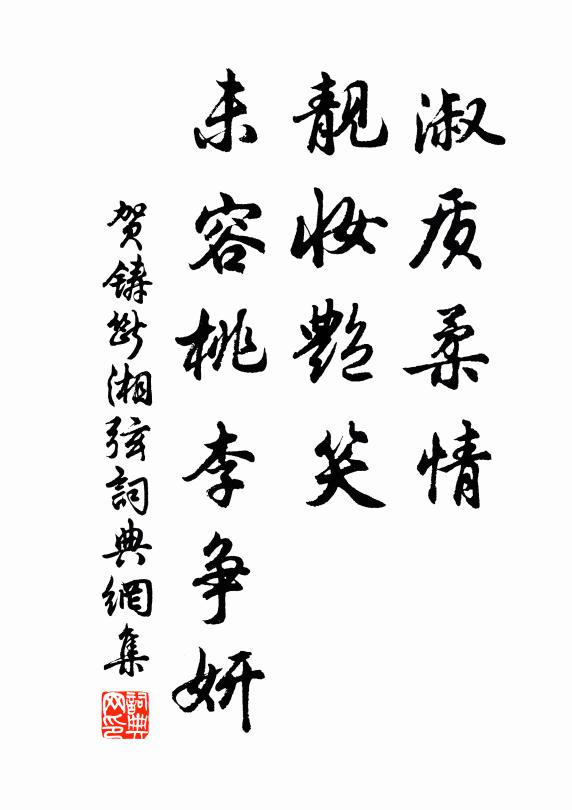 淑质柔情
靓妆艳笑
未容桃李争妍
贺铸断湘弦詞典網集
詞典网印